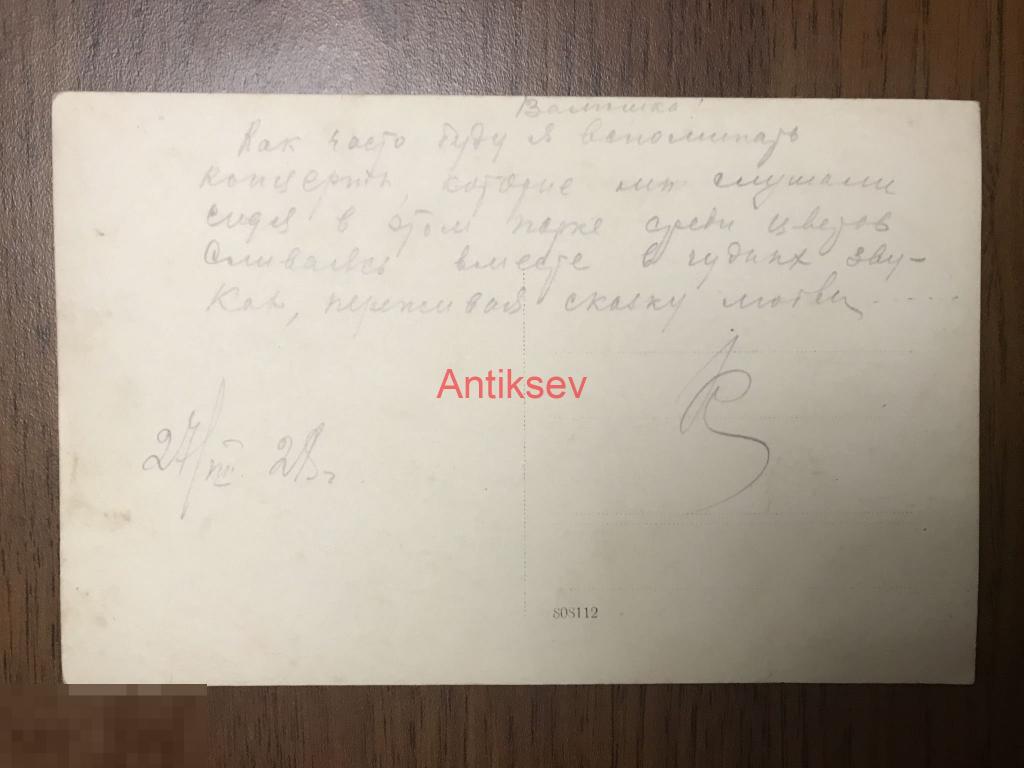 Валюшка!
Как часто буду я вспоминать
концерты, которые мы слушали
сидя в этом парке среди цветов
Сливаясь вместе в чудных зву-
ках, переживая сказку любви.....
27/VIII 28 г
Antiksev
808112